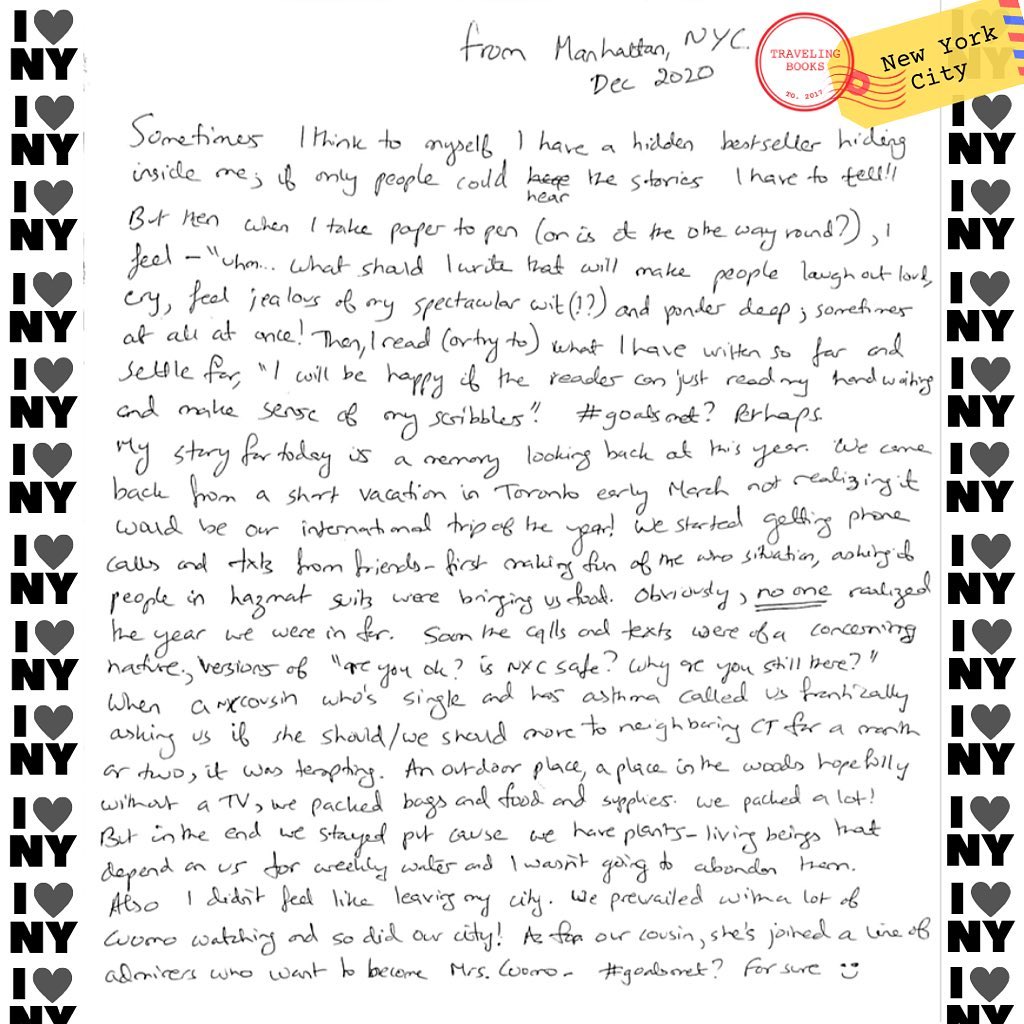 from Manhattan, NYC.
Dec 2020
TRAVELING
BOOKS
TO. 2017
New York
City
Sometimes I think to myself I have a hidden bestseller hiding
inside me; if only people could hear the stories I have to tell!!
But then when I take paper to pen (or is it the othe way round?), I
feel - "uhm... what should I write that will make people laugh out loud,
cry, feel jealous of my spectacular wit (!?) and ponder deep; sometimes
at all at once! Then, I read (or try to) what I have written so far and
settle for, "I will be happy if the reader can just read my handwriting
and make sense of my scribbles". #goalsmet? Perhaps.
My story for today is a memory looking back at this year. We came
back from a short vacation in Toronto early March not realizing it
would be our international trip of the year! We started getting phone
calls and txts from friends - first making fun of the who situation, asking if
people in hazmat suits were bringing us food. Obviously, no one realized
the year we were in for. Soon the calls and texts were of a concerning
nature, versions of "are you ok? is NYC safe? Why are you still here?"
When a NY cousin who's single and has asthma called us frantically
asking us if she should/we should move to neighboring CT for a month
or two, it was tempting. An outdoor place, a place in the woods hopefully
without a TV, we packed bags and food and supplies. We packed a lot!
But in the end we stayed put cause we have plants - living beings that
depend on us for weekly water and I wasn't going to abandon them.
Also I didn't feel like leaving my city. We prevailed with a lot of
Cuomo watching and so did our city! As for our cousin, she's joined a line of
admirers who want to become Mrs. Cuomo - #goalsmet? For sure
I
NY
I
NY
I
NY
I
NY
I
NY
I
NY
I
NY
I
NY
I
NY
I
NY
I
NY
I
I
NY
I
NY
I
NY
I
NY
I
NY
I
NY
I
NY
I
NY
I
NY
I
NY
I